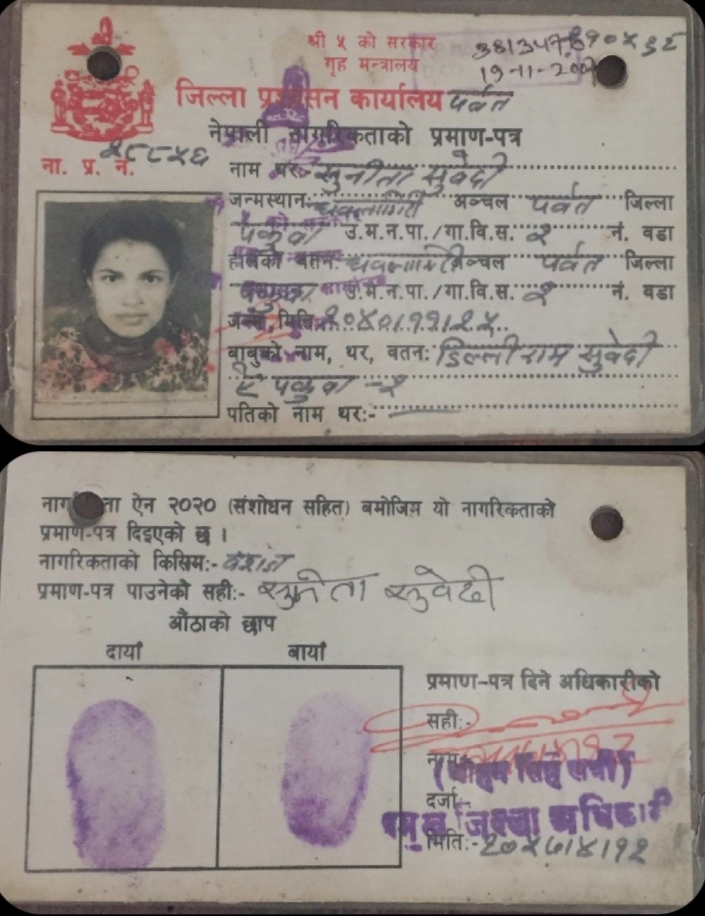 श्री ५ को सरकार
गृह मन्त्रालय
19-11-200
जिल्ला प्रशासन कार्यालय पर्वत
नेपाली नागरिकताको प्रमाण-पत्र
ना. प्र. नं. २८८५६
नाम थर: सुनीता सुवेदी
जन्मस्थान: धवलागिरी अञ्चल पर्वत जिल्ला
पकुवा उ.म.न.पा./गा.वि.स. २ नं. वडा
हालको वतन: धवलागिरी अञ्चल पर्वत जिल्ला
उ.म.न.पा./गा.वि.स. २ नं. वडा
जन्म मिति: २०४०।११।२५
बाबुको नाम, थर, वतन: डिल्लीराम सुवेदी
ऐ पकुवा -२
पतिको नाम थर:-
नागरिकता ऐन २०२० (संशोधन सहित) बमोजिम यो नागरिकताको
प्रमाण-पत्र दिइएको छ ।
नागरिकताको किसिम:- वंशज
प्रमाण-पत्र पाउनेको सही:- सुनिता सुवेदी
औंठाको छाप
दायाँ बायाँ
प्रमाण-पत्र दिने अधिकारीको
सही:-
नाम:-
दर्जा:-
प्रमुख जिल्ला अधिकारी
मिति:- २०५७।४।१२